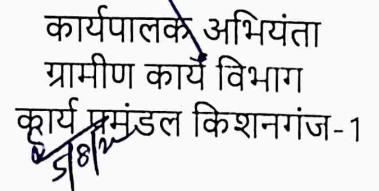 कार्यपालक अभियंता
ग्रामीण कार्य विभाग
कार्य प्रमंडल किशनगंज-1
5/8/2